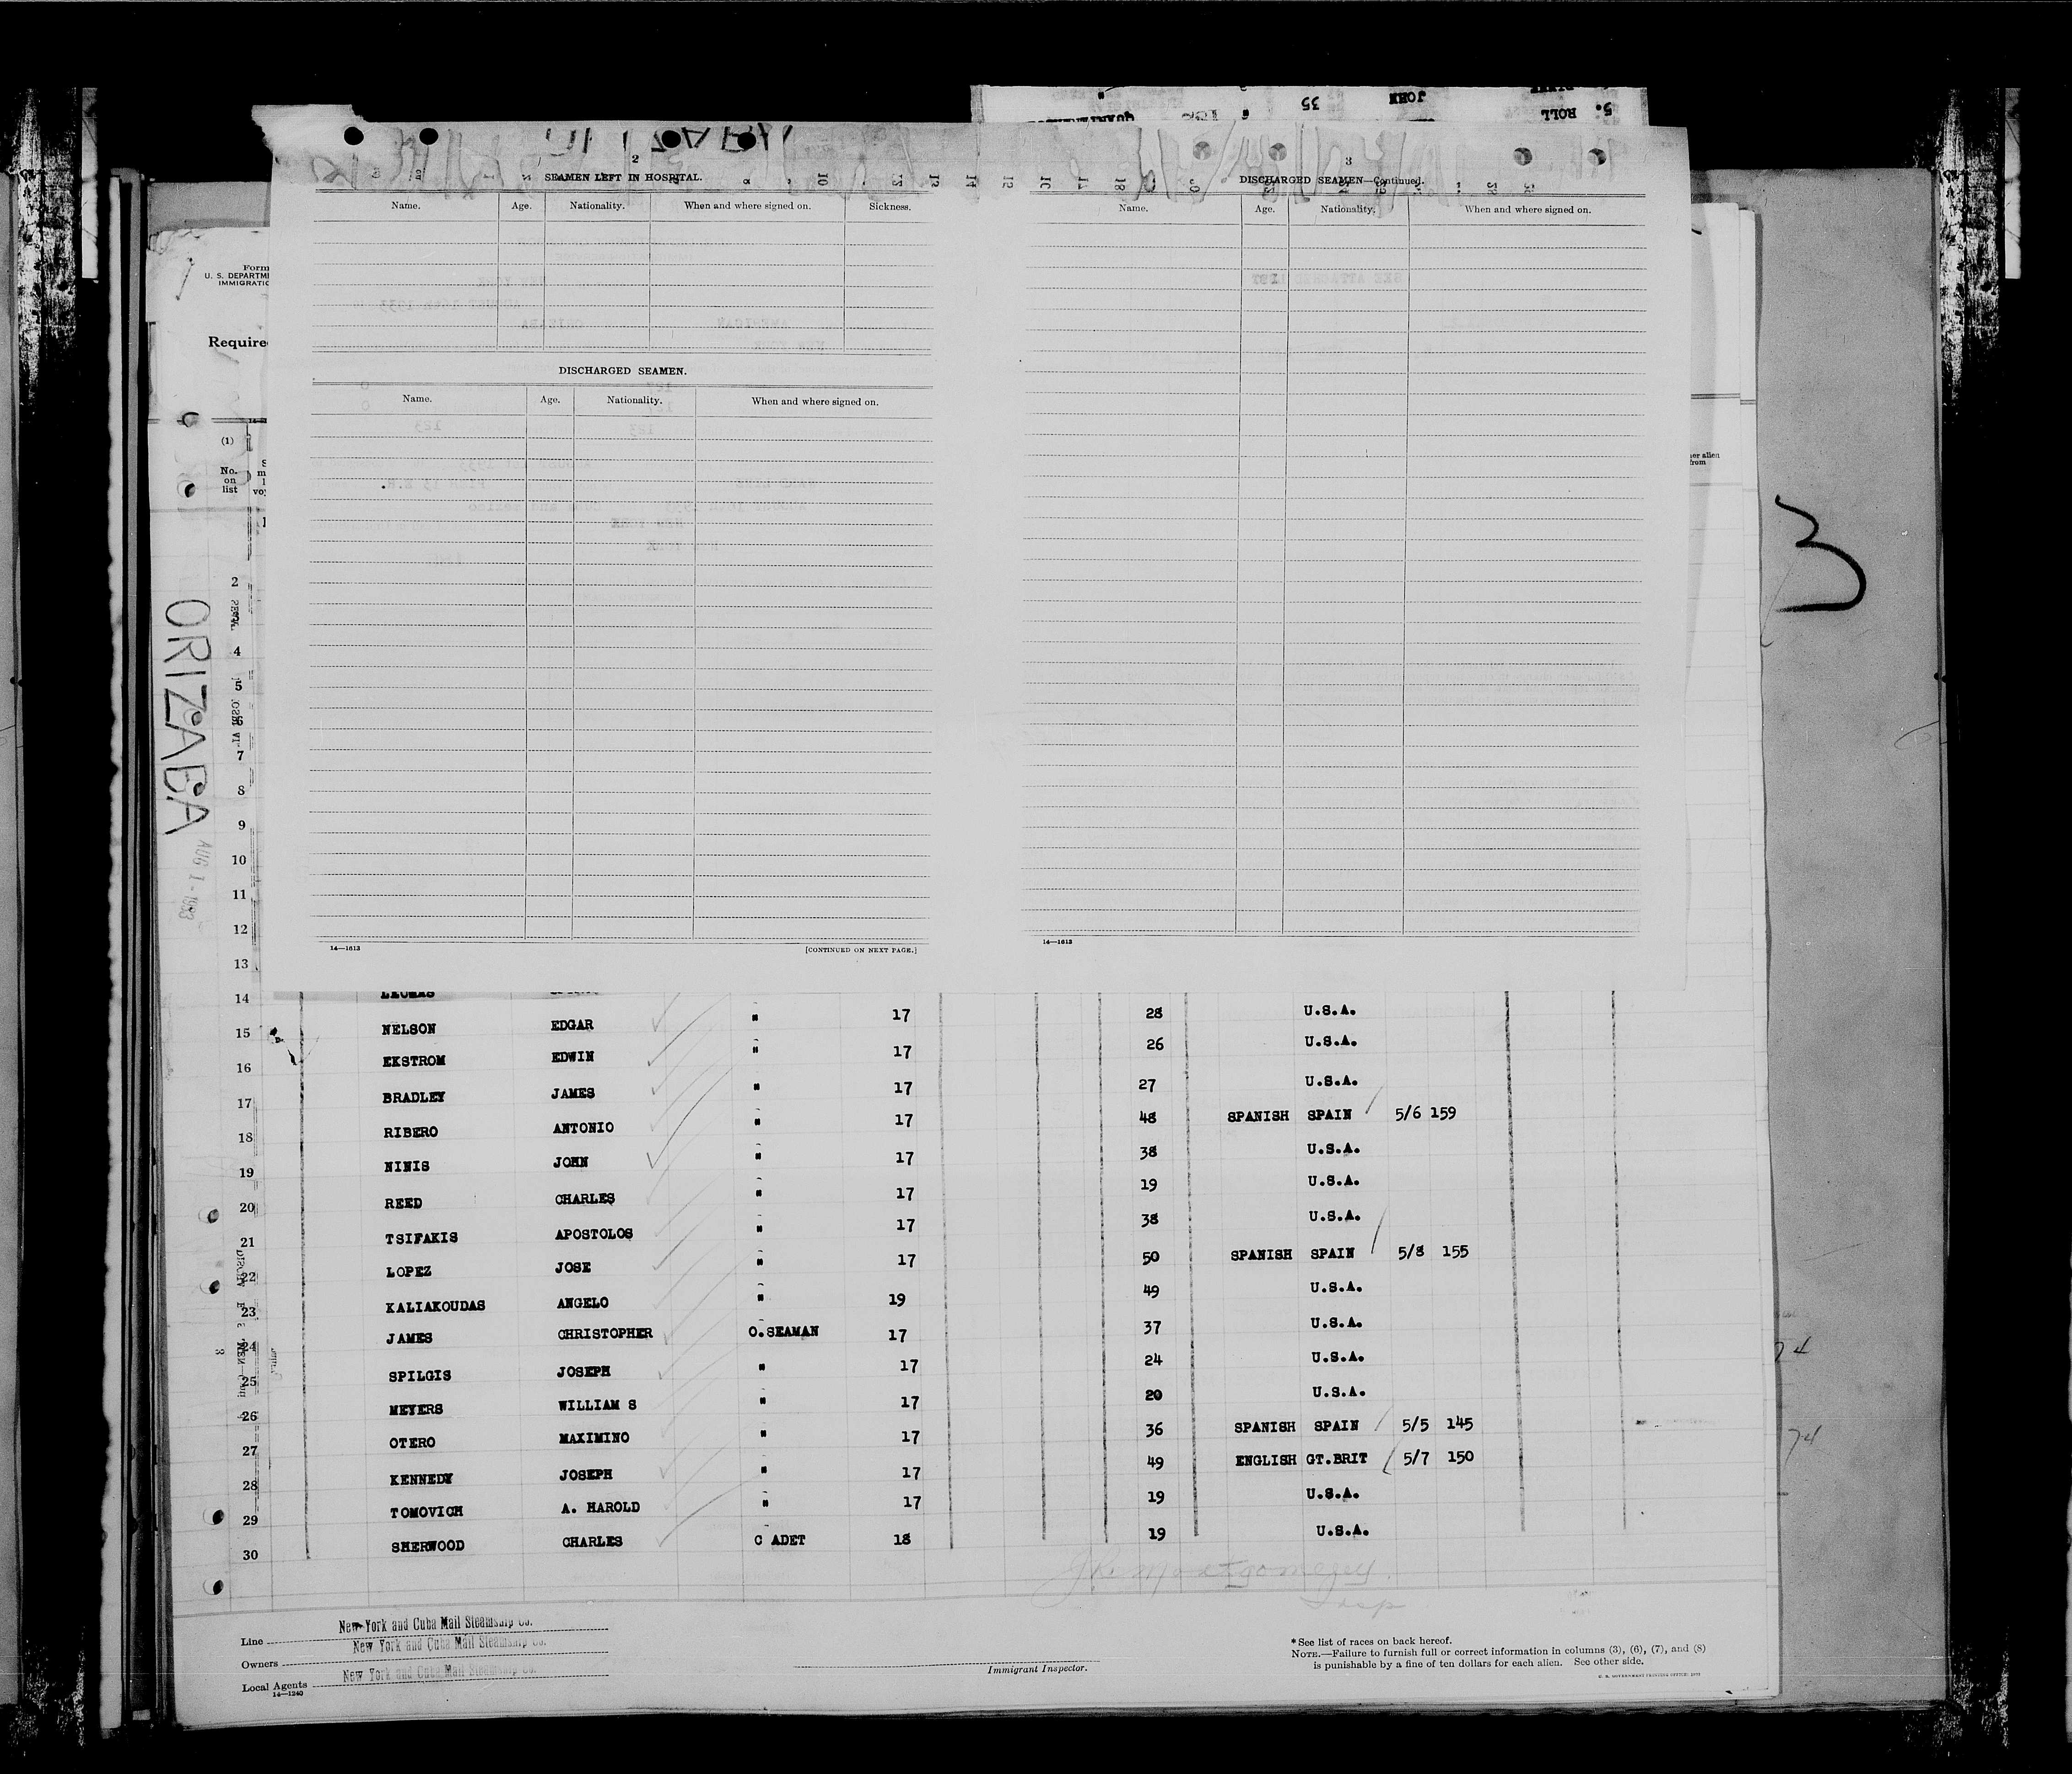 5. ROLL JOHN 35 "
2
SEAMEN LEFT IN HOSPITAL.
Name. Age. Nationality. When and where signed on. Sickness.
DISCHARGED SEAMEN.
Name. Age. Nationality. When and where signed on.
14—1613 [CONTINUED ON NEXT PAGE.]
3
DISCHARGED SEAMEN—Continued.
Name. Age. Nationality. When and where signed on.
14—1613
Form
U. S. DEPARTM
IMMIGRATIO
Require
(1)
No.
on
list
ORIZABA
AUG 1 - 1933
3
2
4
5
7
8
9
10
11
12
13
14
15 NELSON EDGAR " 17 28 U.S.A.
16 EKSTROM EDWIN " 17 26 U.S.A.
17 BRADLEY JAMES " 17 27 U.S.A.
18 RIBERO ANTONIO " 17 48 SPANISH SPAIN 5/6 159
19 NINIS JOHN " 17 38 U.S.A.
20 REED CHARLES " 17 19 U.S.A.
21 TSIFAKIS APOSTOLOS " 17 38 U.S.A.
22 LOPEZ JOSE " 17 50 SPANISH SPAIN 5/8 155
23 KALIAKOUDAS ANGELO " 19 49 U.S.A.
24 JAMES CHRISTOPHER O.SEAMAN 17 37 U.S.A.
25 SPILGIS JOSEPH " 17 24 U.S.A.
26 MEYERS WILLIAM S " 17 20 U.S.A.
27 OTERO MAXIMINO " 17 36 SPANISH SPAIN 5/5 145
28 KENNEDY JOSEPH " 17 49 ENGLISH GT.BRIT 5/7 150
29 TOMOVICH A. HAROLD " 17 19 U.S.A.
30 SHERWOOD CHARLES C ADET 18 19 U.S.A.
J.R. Montgomery
Insp
Line New York and Cuba Mail Steamship Co.
Owners New York and Cuba Mail Steamship Co.
Local Agents New York and Cuba Mail Steamship Co.
14—1240
Immigrant Inspector.
* See list of races on back hereof.
NOTE.—Failure to furnish full or correct information in columns (3), (6), (7), and (8)
is punishable by a fine of ten dollars for each alien. See other side.
74
74